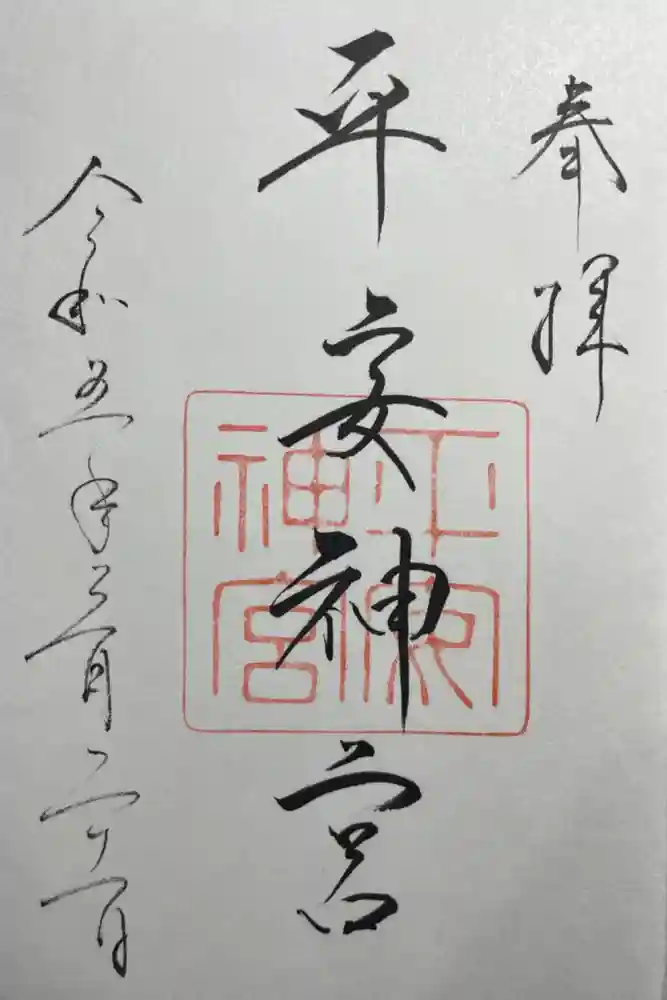 奉拝
平安神宮
令和五年三月二十一日
平安
神宮